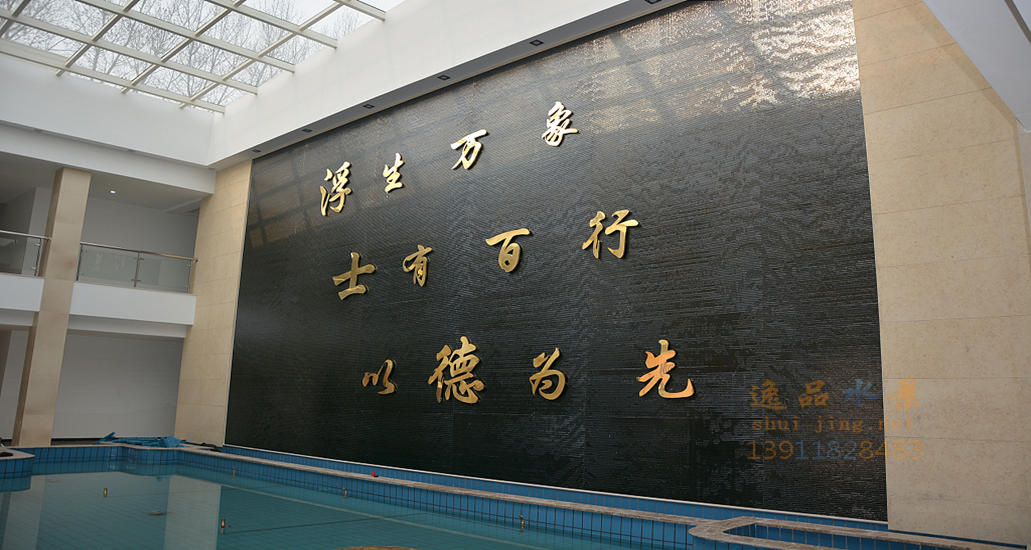 浮生万象
士有百行
以德为先
逸品水景
shui jing.net
13911828483